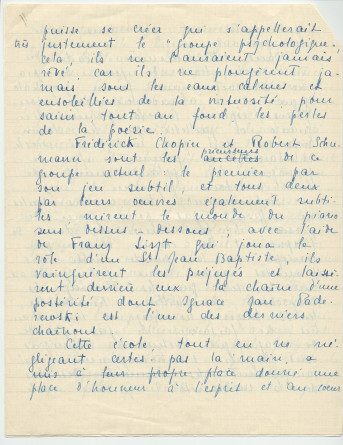 puisse se créer qui s'appellerait
justement le "groupe psychologique,
cela, ils ne l'auraient jamais
rêvé, car ils ne plongèrent ja-
mais sous les eaux calmes et
ensoleillées de la virtuosité, pour
saisir, tout au fond, les perles
de la poésie.
Frédérick Chopin et Robert Schu-
précurseurs
mann sont les ancêtres de ce
groupe actuel: le premier par
son jeu subtil, et tous deux
par leurs œuvres également subti-
les, mirent le monde du piano
sens dessus-dessous; avec l'aide
de Franz Liszt qui joua le
rôle d'un St Jean Baptiste, ils
vainquirent les préjugés et laissè-
rent derrière eux la chaîne d'une
postérité dont Ignace Jan Pade-
rewski est l'un des derniers
chaînons.
Cette école, tout en ne né-
gligeant certes pas la main, a
mis à leur propre place donné une
place d'honneur à l'esprit et au cœur